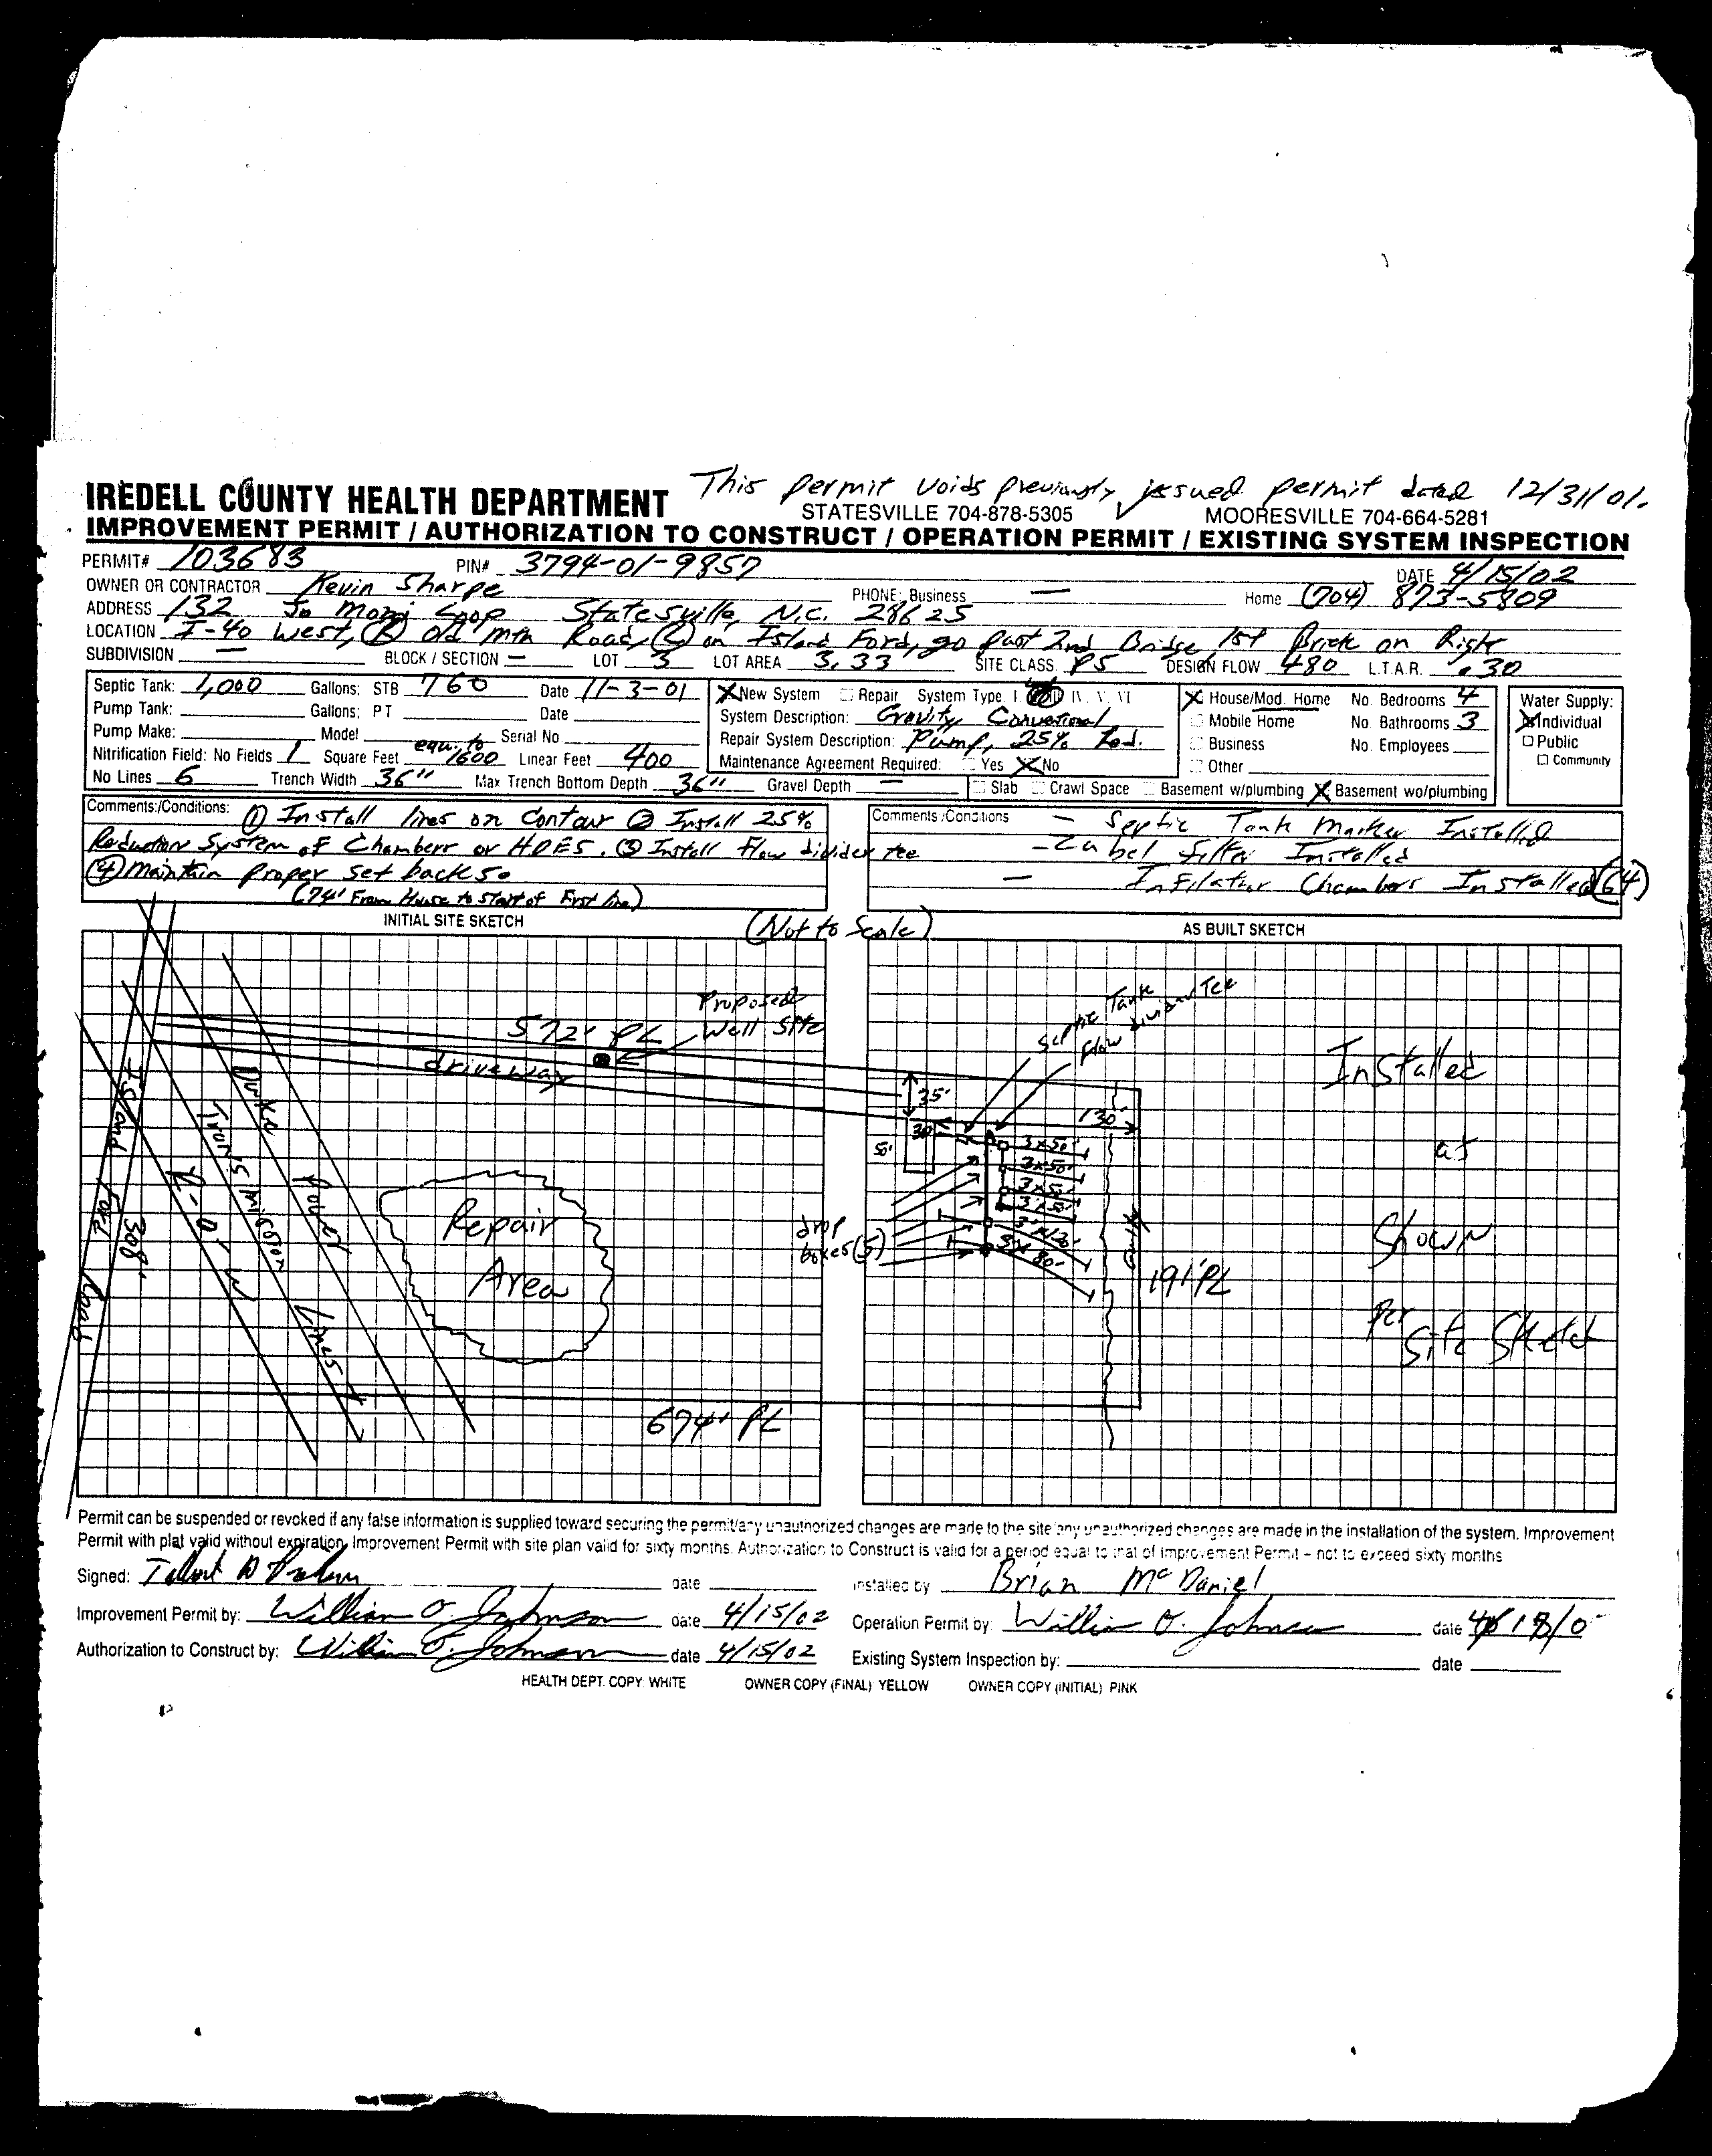 This permit voids previously issued permit dated 12/31/01.
IREDELL COUNTY HEALTH DEPARTMENT
STATESVILLE 704-878-5305 MOORESVILLE 704-664-5281
IMPROVEMENT PERMIT / AUTHORIZATION TO CONSTRUCT / OPERATION PERMIT / EXISTING SYSTEM INSPECTION
PERMIT# 103683 PIN# 3794-01-9857 DATE 4/15/02
OWNER OR CONTRACTOR Kevin Sharpe PHONE: Business — Home (704) 873-5809
ADDRESS 132 Jo Mozi Loop Statesville, N.C. 28625
LOCATION I-40 West, (R) Old Mtn Road, (L) on Island Ford, go past 2nd Bridge 1st Brick on Right
SUBDIVISION — BLOCK / SECTION — LOT 3 LOT AREA 3.33 SITE CLASS. PS DESIGN FLOW 480 L.T.A.R. .30
Septic Tank: 1,000 Gallons: STB 760 Date 11-3-01
Pump Tank: Gallons: PT Date
Pump Make: Model Serial No.
Nitrification Field: No Fields 1 Square Feet equ. to 1600 Linear Feet 400
No Lines 6 Trench Width 36" Max Trench Bottom Depth 36" Gravel Depth —
X New System Repair System Type I. IV. V. VI
System Description: Gravity Conventional
Repair System Description: Pump, 25% Red.
Maintenance Agreement Required: Yes X No
Slab Crawl Space Basement w/plumbing X Basement wo/plumbing
X House/Mod. Home No. Bedrooms 4
Mobile Home No. Bathrooms 3
Business No. Employees
Other
Water Supply:
X Individual
Public
Community
Comments:/Conditions: ① Install lines on Contour ② Install 25%
Reduction System of Chambers or HDES. ③ Install Flow divider tee
④ maintain proper set backs.
(74' From House to start of First line)
Comments:/Conditions — Septic Tank Marker Installed
— Zabel filter Installed
— Infilator Chambers Installed (64)
INITIAL SITE SKETCH
(Not to Scale)
AS BUILT SKETCH
Proposed
Well Site
572' PL
driveway
Island Ford Road
308'
Duken Power
Transmission Lines
R-O-W
Repair
Area
674' PL
Septic Tank
flow divider Tee
35'
30'
50'
130'
3x50'
3x50'
3x50'
3x50'
drop
boxes (5)
Gully
191' PL
Installed
as
Shown
Per
Site Sketch
Permit can be suspended or revoked if any false information is supplied toward securing the permit/any unauthorized changes are made to the site/any unauthorized changes are made in the installation of the system. Improvement
Permit with plat valid without expiration, Improvement Permit with site plan valid for sixty months. Authorization to Construct is valid for a period equal to that of Improvement Permit – not to exceed sixty months
Signed: date installed by Brian McDaniel
Improvement Permit by: William O. Johnson date 4/15/02 Operation Permit by: William O. Johnson date
Authorization to Construct by: William O. Johnson date 4/15/02 Existing System Inspection by: date
HEALTH DEPT. COPY: WHITE OWNER COPY (FINAL) YELLOW OWNER COPY (INITIAL) PINK